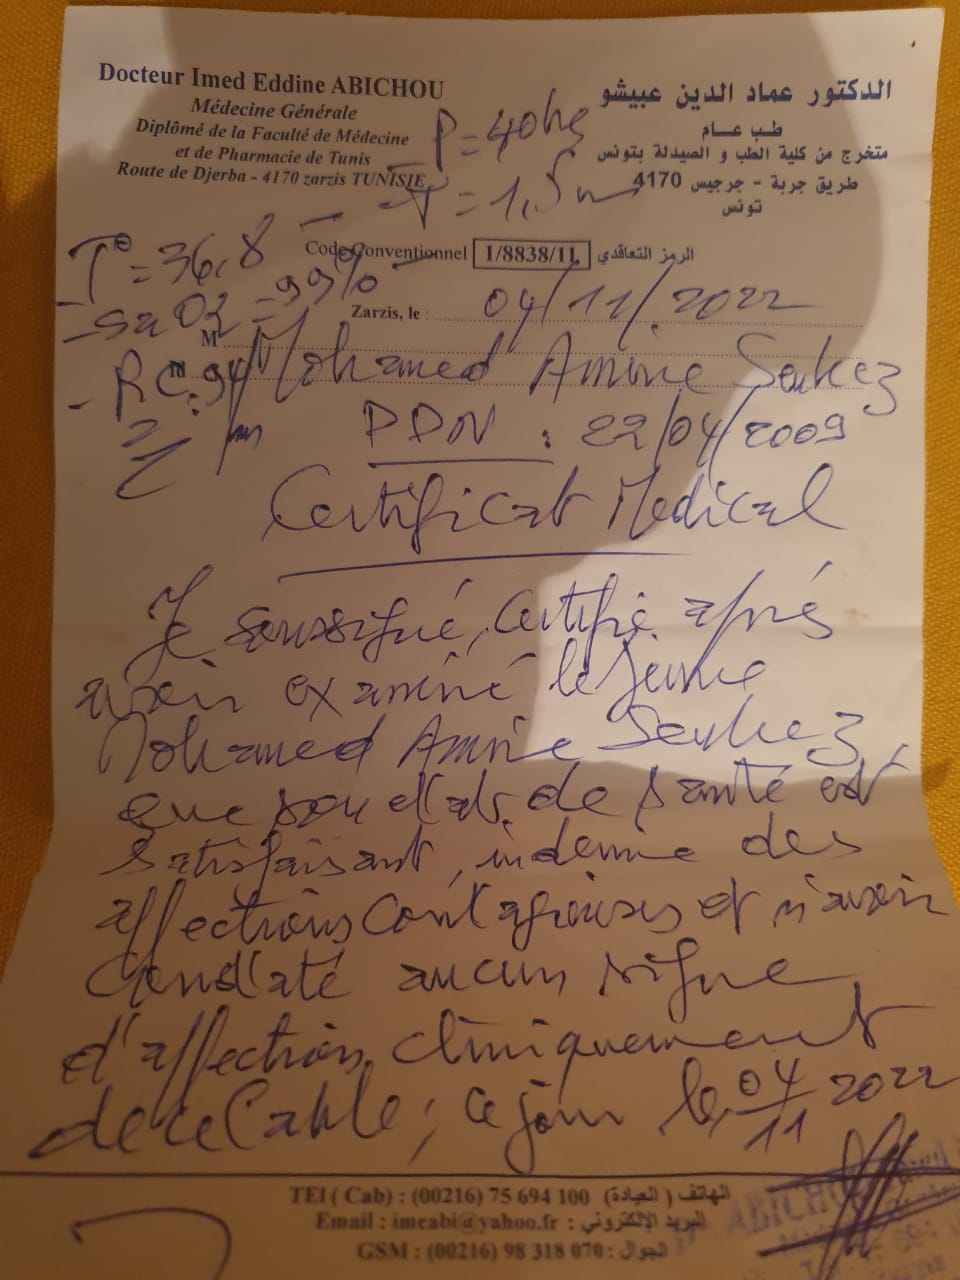 Docteur Imed Eddine ABICHOU
Médecine Générale
Diplômé de la Faculté de Médecine
et de Pharmacie de Tunis
Route de Djerba - 4170 zarzis TUNISIE
الدكتور عماد الدين عبيشو
طب عام
متخرج من كلية الطب و الصيدلة بتونس
طريق جربة - جرجيس 4170
تونس
P = 40 kg
T = 1,5 m
T° = 36,8
- SaO2 = 99%
- RC: 94/
mn
Code Conventionnel 1/8838/11 الرمز التعاقدي
Zarzis, le : 04/11/2022
M Mohamed Amine
DDN : 22/04/2009
Certificat Medical
Je soussigné, certifie après
avoir examiné le jeune
Mohamed Amine
que son état de santé est
satisfaisant, indemne des
affections contagieuses et n'avoir
constaté aucun signe
d'affection cliniquement
décelable, ce jour le 04/11 2022
TEl ( Cab) : (00216) 75 694 100 الهاتف ( العيادة)
Email : imeabi@yahoo.fr : البريد الإلكتروني
GSM : (00216) 98 318 070 : الجوال
ABICHOU